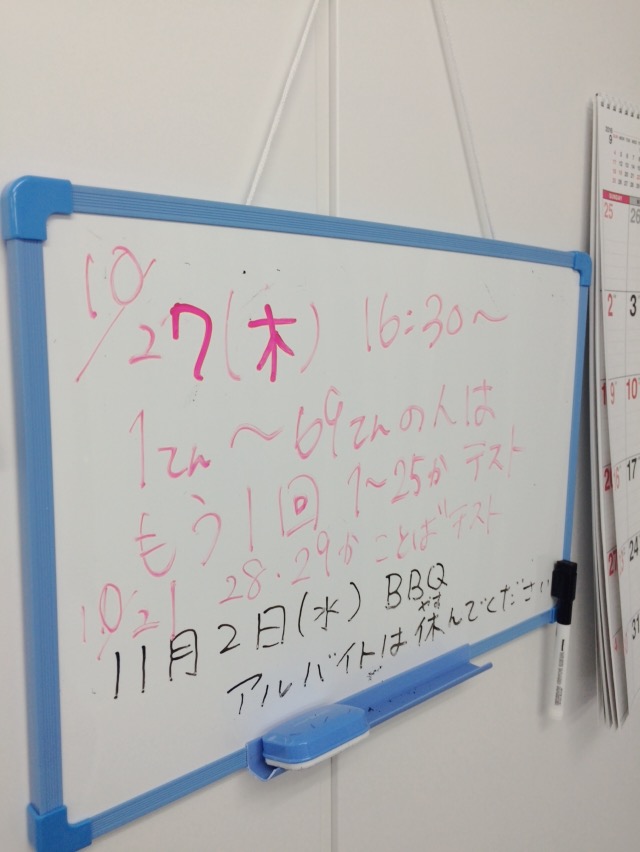 10/27(木) 16:30〜
1てん〜69てんの人は
もう1回 1〜25か テスト
10/21 28・29か ことばテスト
11月2日(水) BBQ
やす
アルバイトは休んでください
SUNDAY
25 26
2 3
9 10
17
24
31